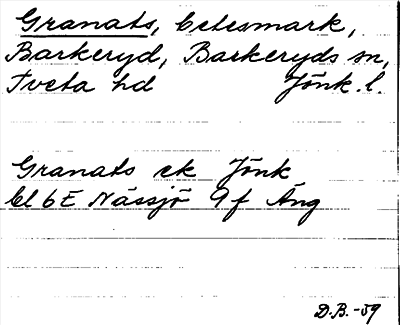 Granats, betesmark,
Barkeryd, Barkeryds sn,
Tveta hd Jönk. l.
Granats ek Jönk
bl 6E Nässjö 9f Äng
D.B.-59